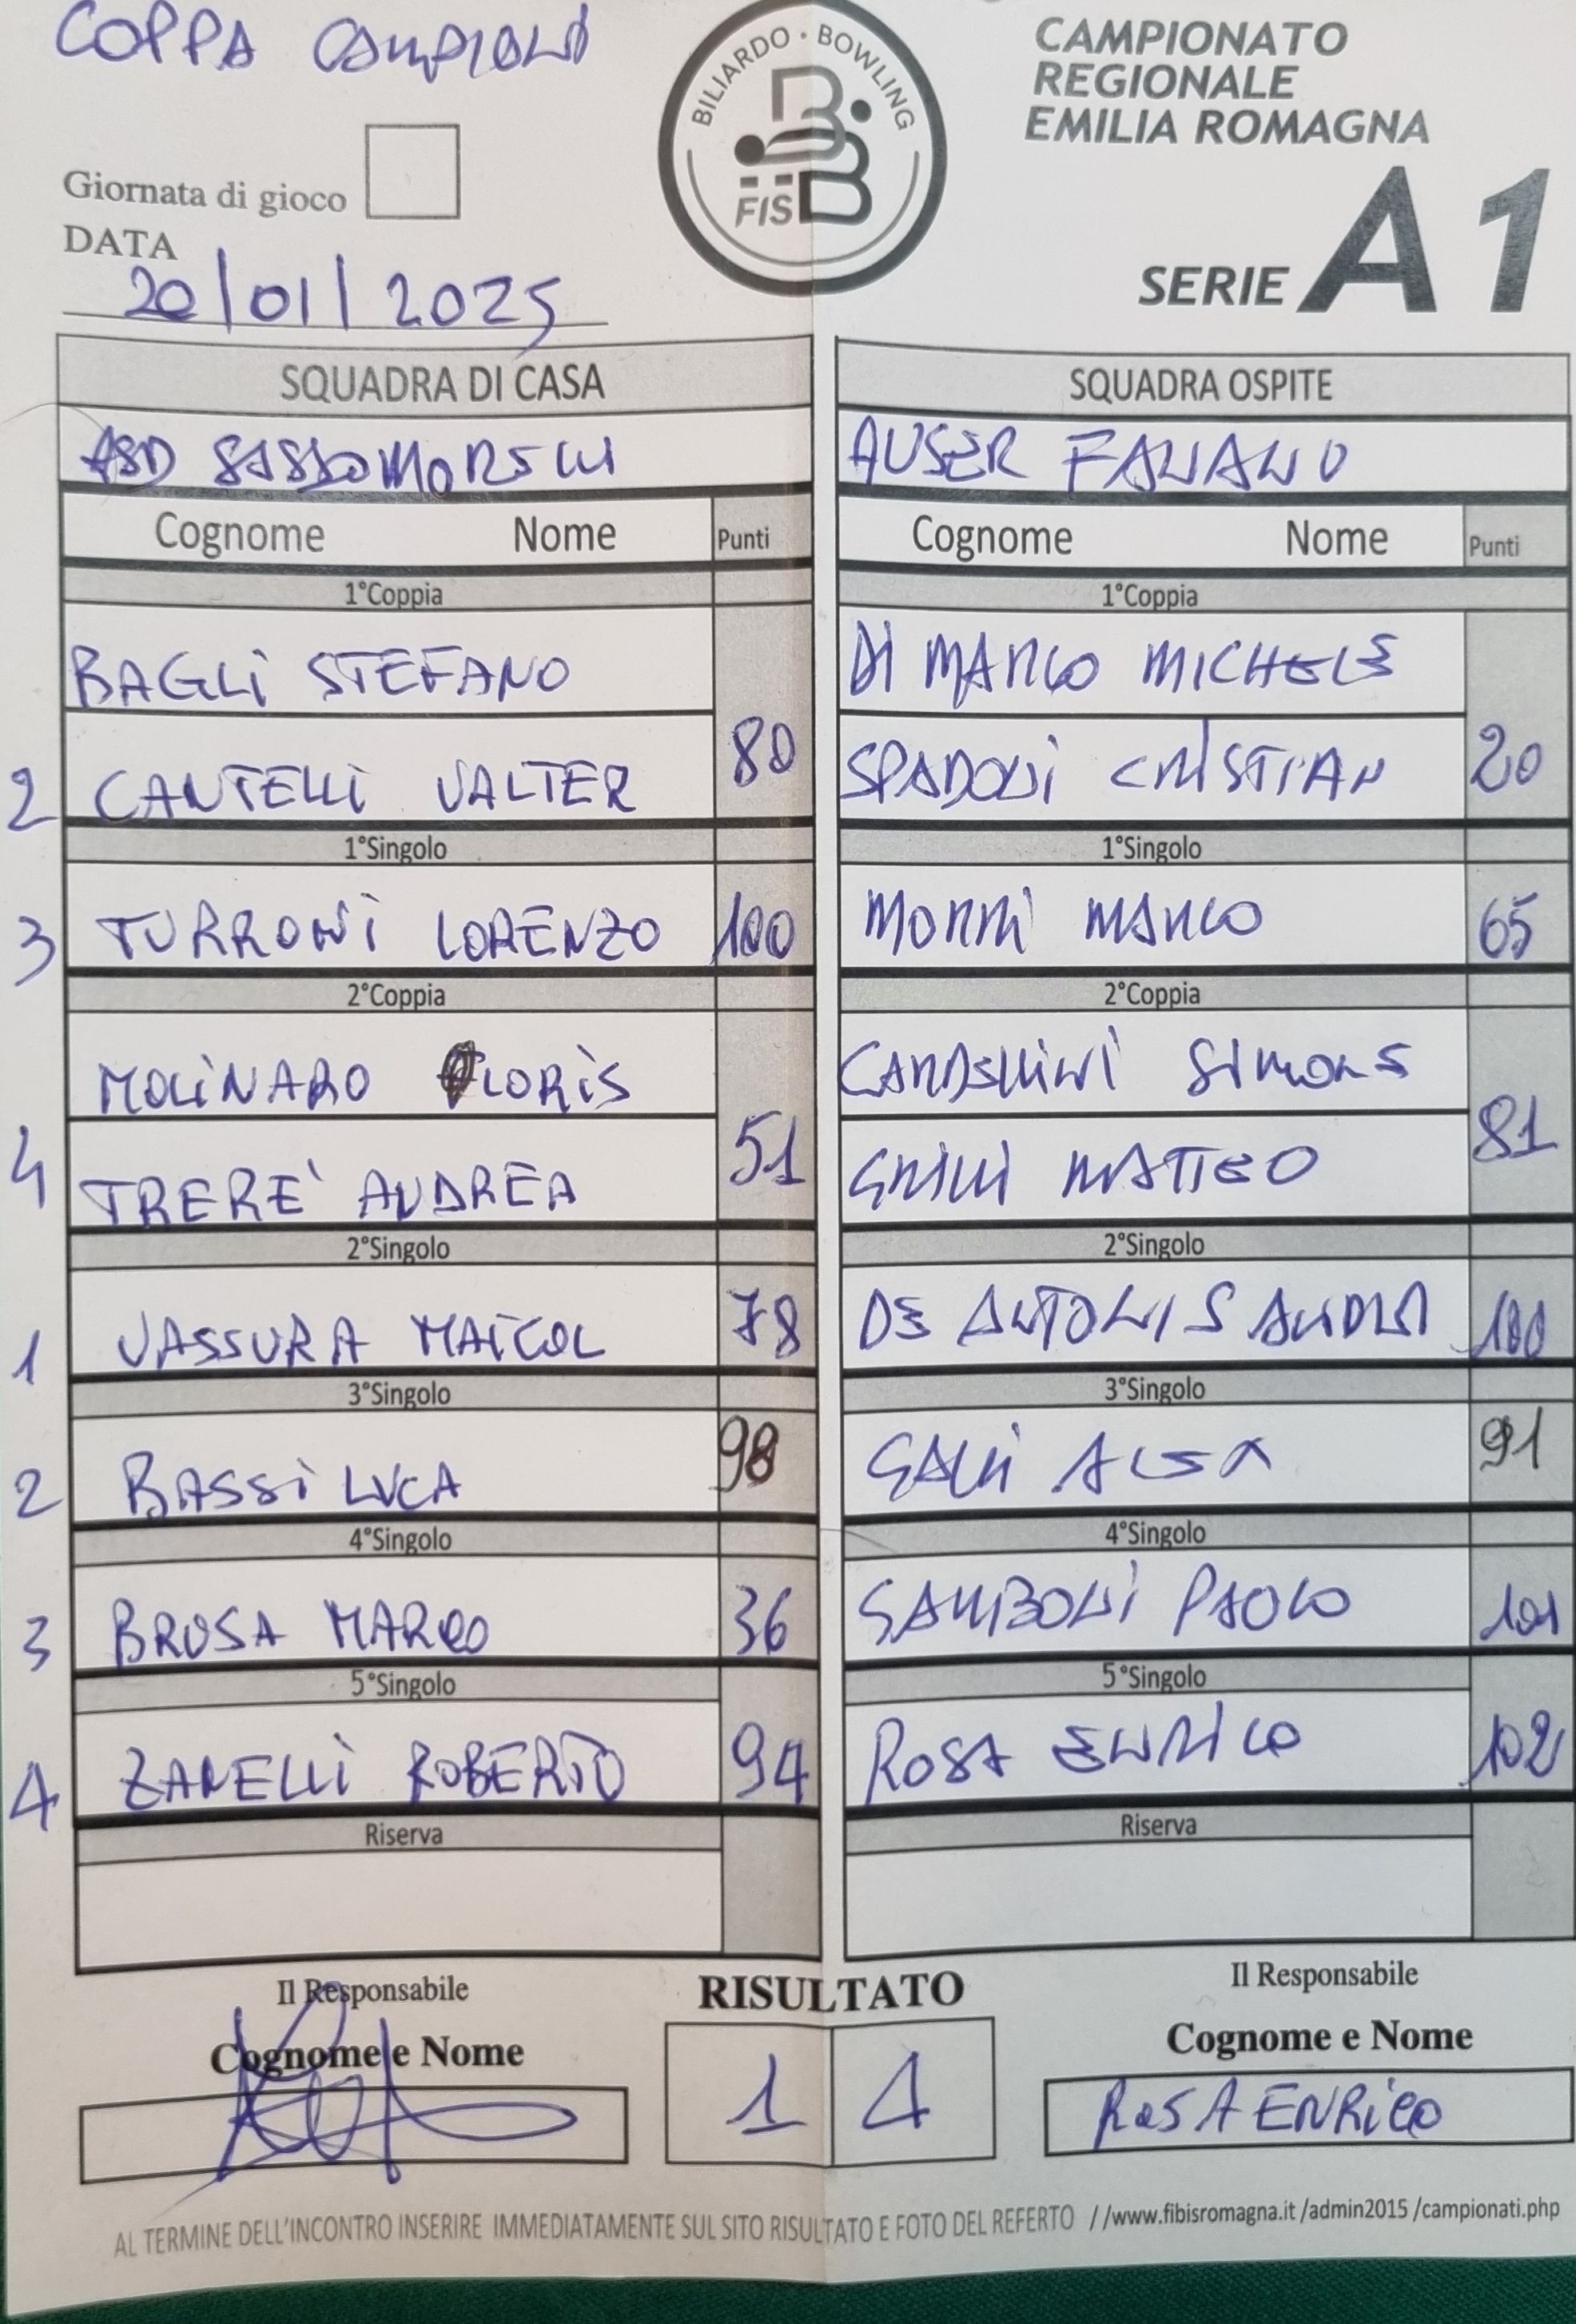 COPPA CAMPIONI
BILIARDO • BOWLING
FISBB
CAMPIONATO
REGIONALE
EMILIA ROMAGNA
SERIE A1
Giornata di gioco
DATA
20/01/2025
SQUADRA DI CASA SQUADRA OSPITE
ASD AUSER FANANO
Cognome Nome Punti Cognome Nome Punti
1°Coppia 1°Coppia
BAGLI STEFANO DI MARCO MICHELE
2 CANTELLI VALTER 80 SPADONI CRISTIAN 20
1°Singolo 1°Singolo
3 TURRONI LORENZO 100 MORRI MARCO 65
2°Coppia 2°Coppia
MOLINARO LORIS SIMONE
4 TRERE' ANDREA 51 GRILLI MATTEO 81
2°Singolo 2°Singolo
1 VASSURA MAICOL 78 DE ANTONIS ANDREA 100
3°Singolo 3°Singolo
2 BASSI LUCA 98 GALLI ALEX 91
4°Singolo 4°Singolo
3 BROSA MARCO 36 SAMBONI PAOLO 101
5°Singolo 5°Singolo
4 ZANELLI ROBERTO 94 ROSA ENRICO 102
Riserva Riserva
Il Responsabile RISULTATO Il Responsabile
Cognome e Nome Cognome e Nome
1 4 ROSA ENRICO
AL TERMINE DELL'INCONTRO INSERIRE IMMEDIATAMENTE SUL SITO RISULTATO E FOTO DEL REFERTO //www.fibisromagna.it /admin2015 /campionati.php